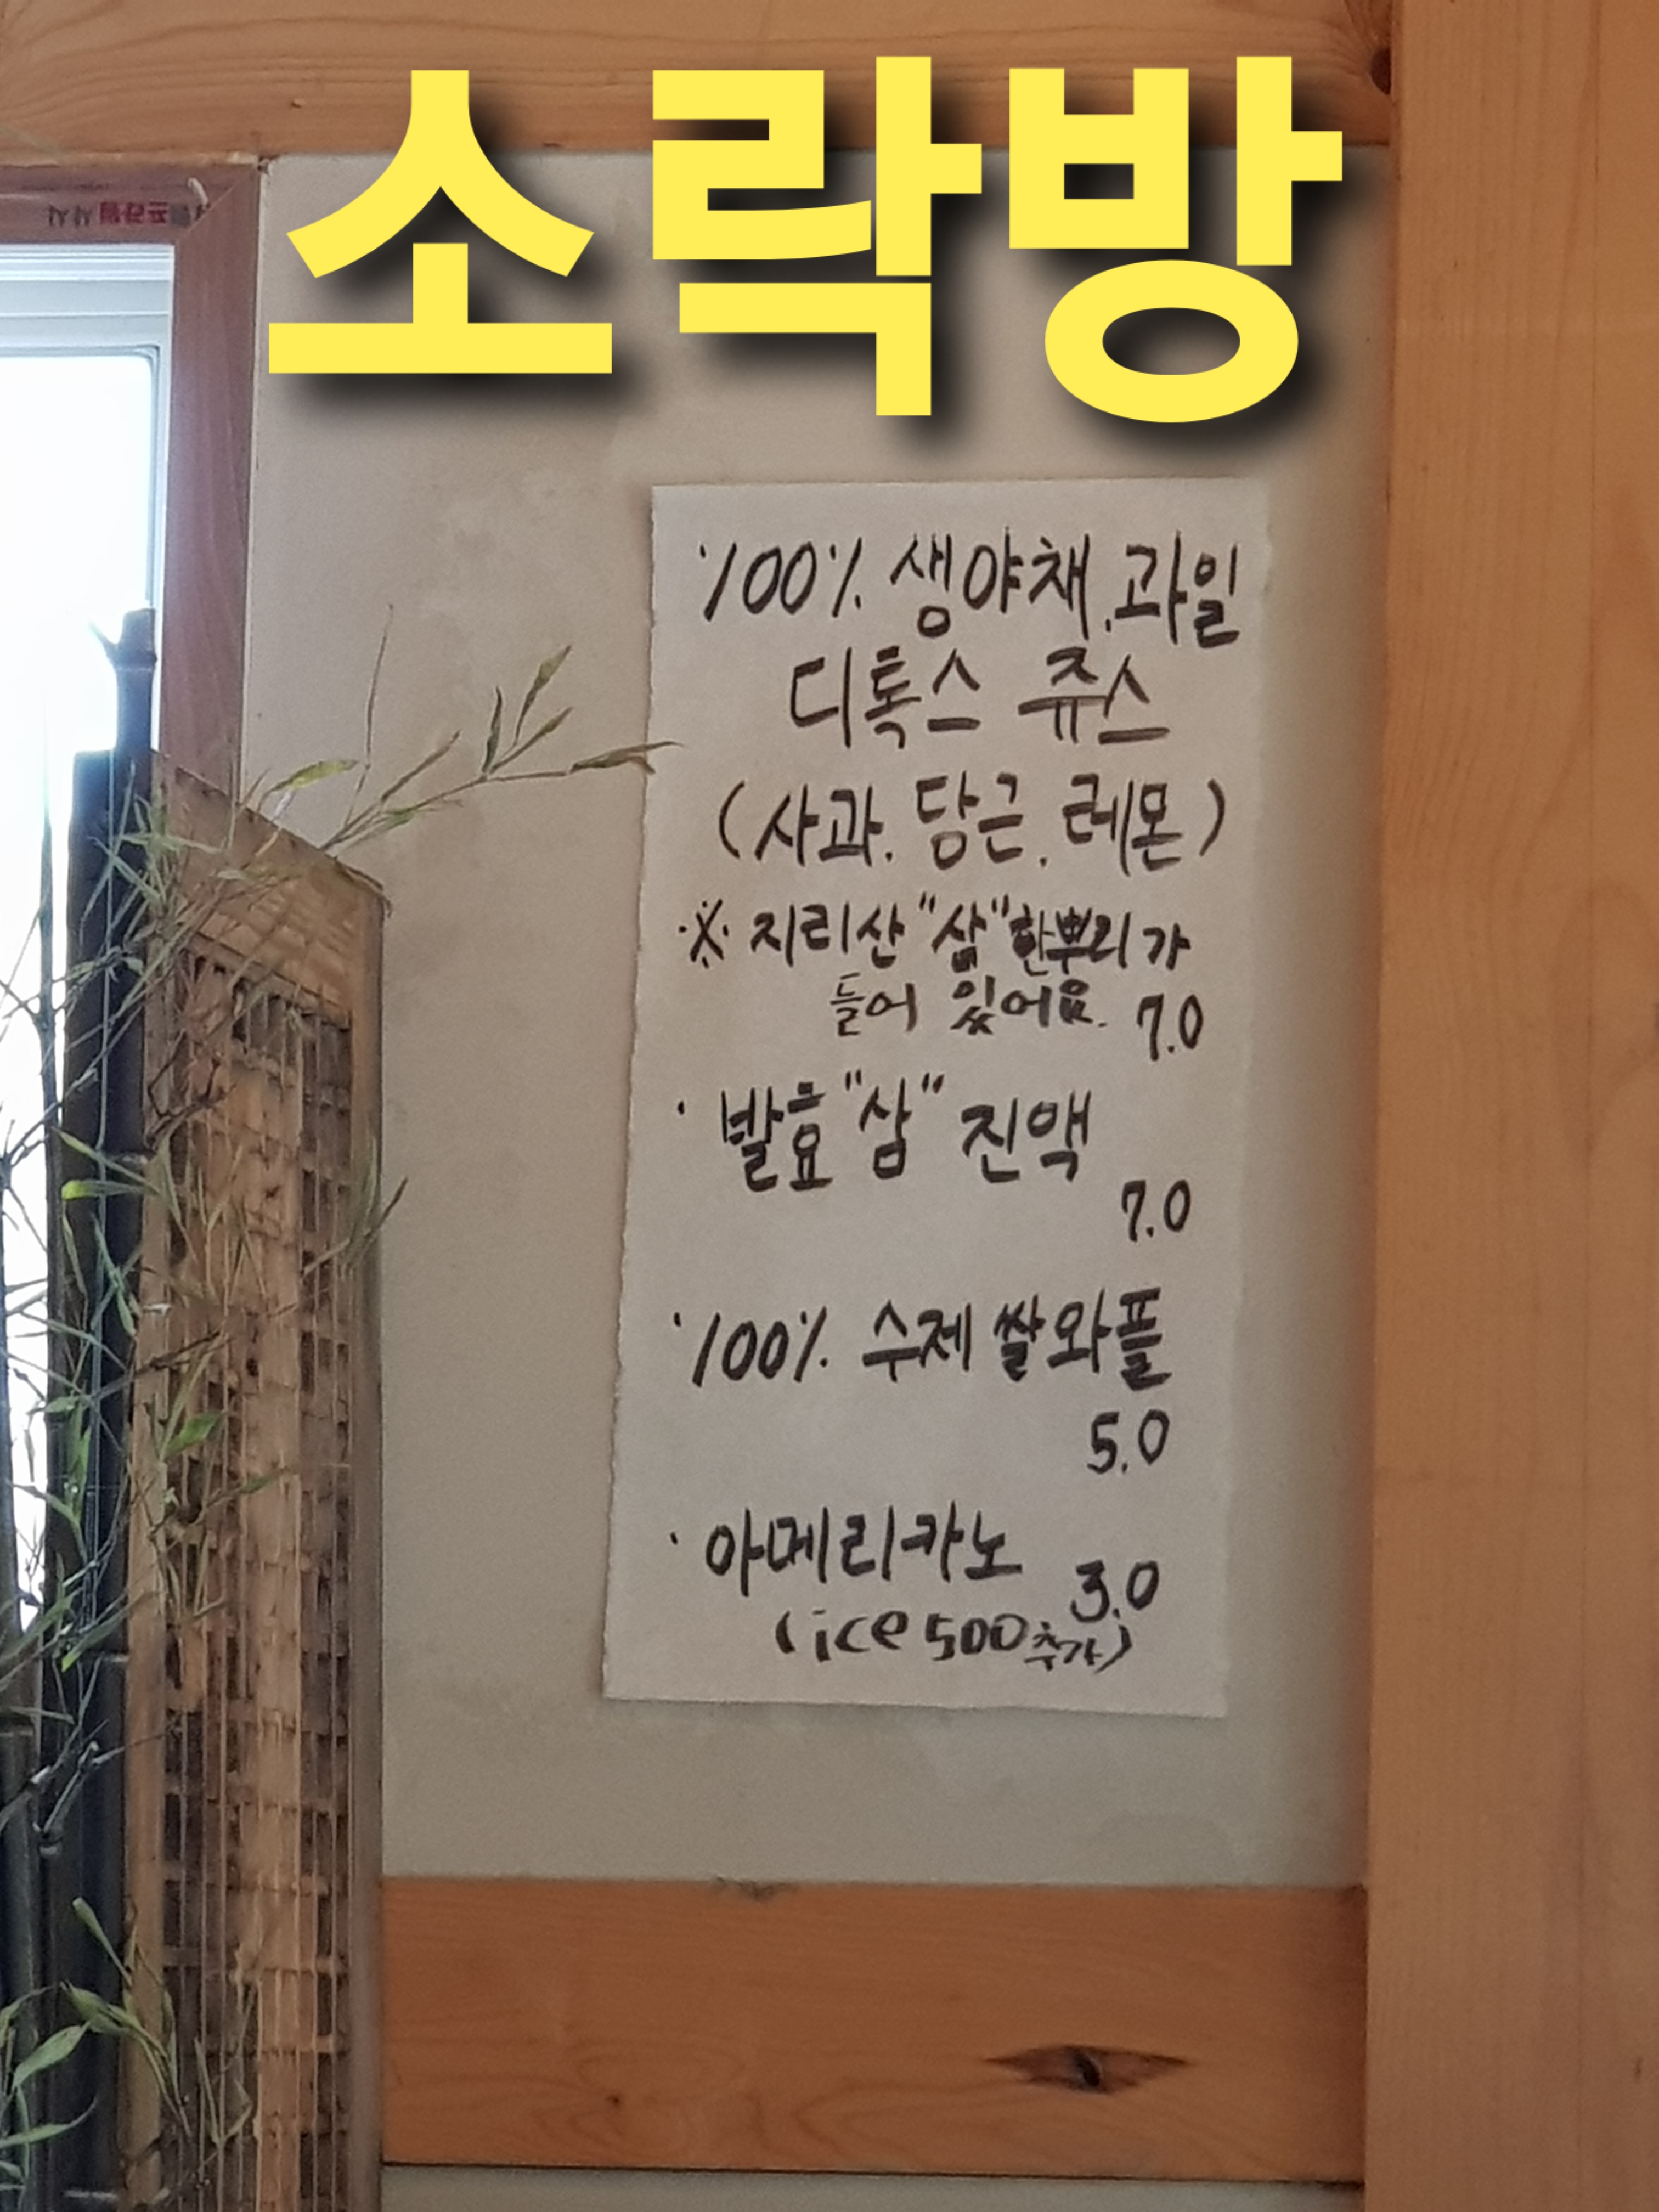 소락방
·100% 생야채.과일
디톡스 쥬스
(사과. 당근. 레몬)
※ 지리산 "삼" 한뿌리가
들어 있어요. 7.0
· 발효 "삼" 진액
7.0
·100% 수제 쌀와플
5.0
· 아메리카노
3.0
(ice 500 추가)